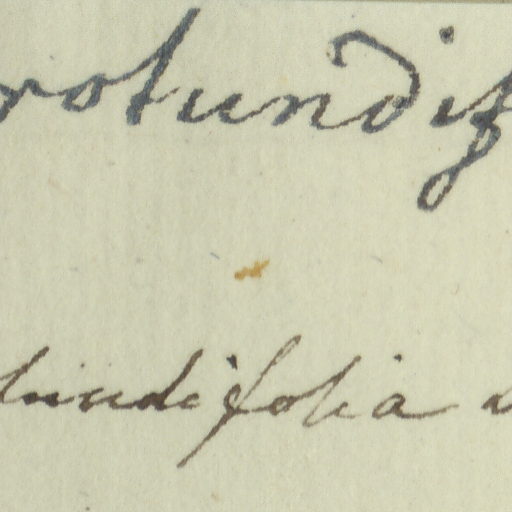 rotundif
tundifolia